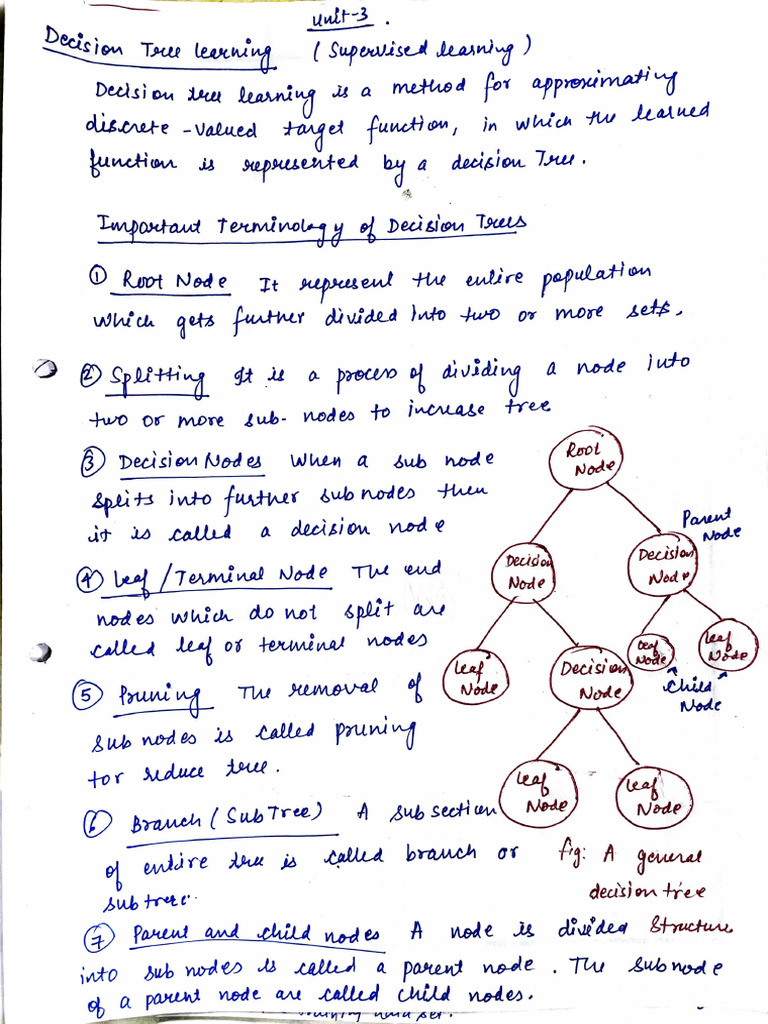 Unit-3.
Decision Tree learning (Supervised learning)
Decision tree learning is a method for approximating
discrete-valued target function, in which the learned
function is represented by a decision Tree.
Important Terminology of Decision Trees
① Root Node It represent the entire population
which gets further divided into two or more sets.
② Splitting It is a process of dividing a node into
two or more sub-nodes to increase tree
③ Decision Nodes When a sub node
splits into further sub nodes then
it is called a decision node
④ Leaf / Terminal Node The end
nodes which do not split are
called leaf or terminal nodes
⑤ Pruning The removal of
sub nodes is called pruning
tor reduce tree.
⑥ Branch (SubTree) A sub section
of entire tree is called branch or
subtree.
⑦ Parent and child nodes A node is divided
into sub nodes is called a parent node. The sub node
of a parent node are called child nodes.
Root
Node
Parent
Node
Decision
Node
Decision
Node
Leaf
Node
Decision
Node
Leaf
Node
Leaf
Node
Child
Node
Leaf
Node
Leaf
Node
fig: A general
decision tree
Structure